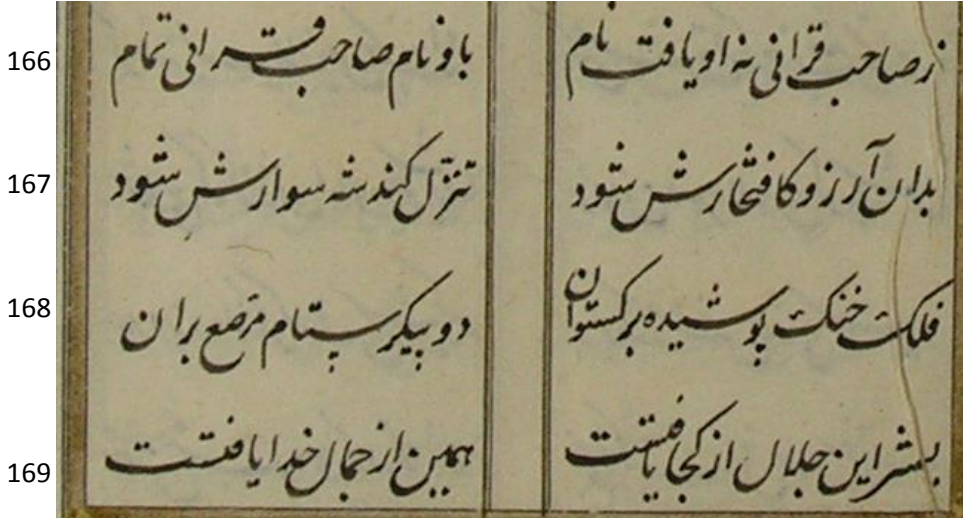 166 ز صاحب قرانی نه او یافت نام باو نام صاحب قرانی تمام
167 بدان آرزو کافتخارش شود تنزل کند شه سوارش شود
168 فلک خنک پوشیده برکستوان دو پیکر ستام مرصع بران
169 بشر این جلال از کجا یافتست همین از جمال خدا یافتست